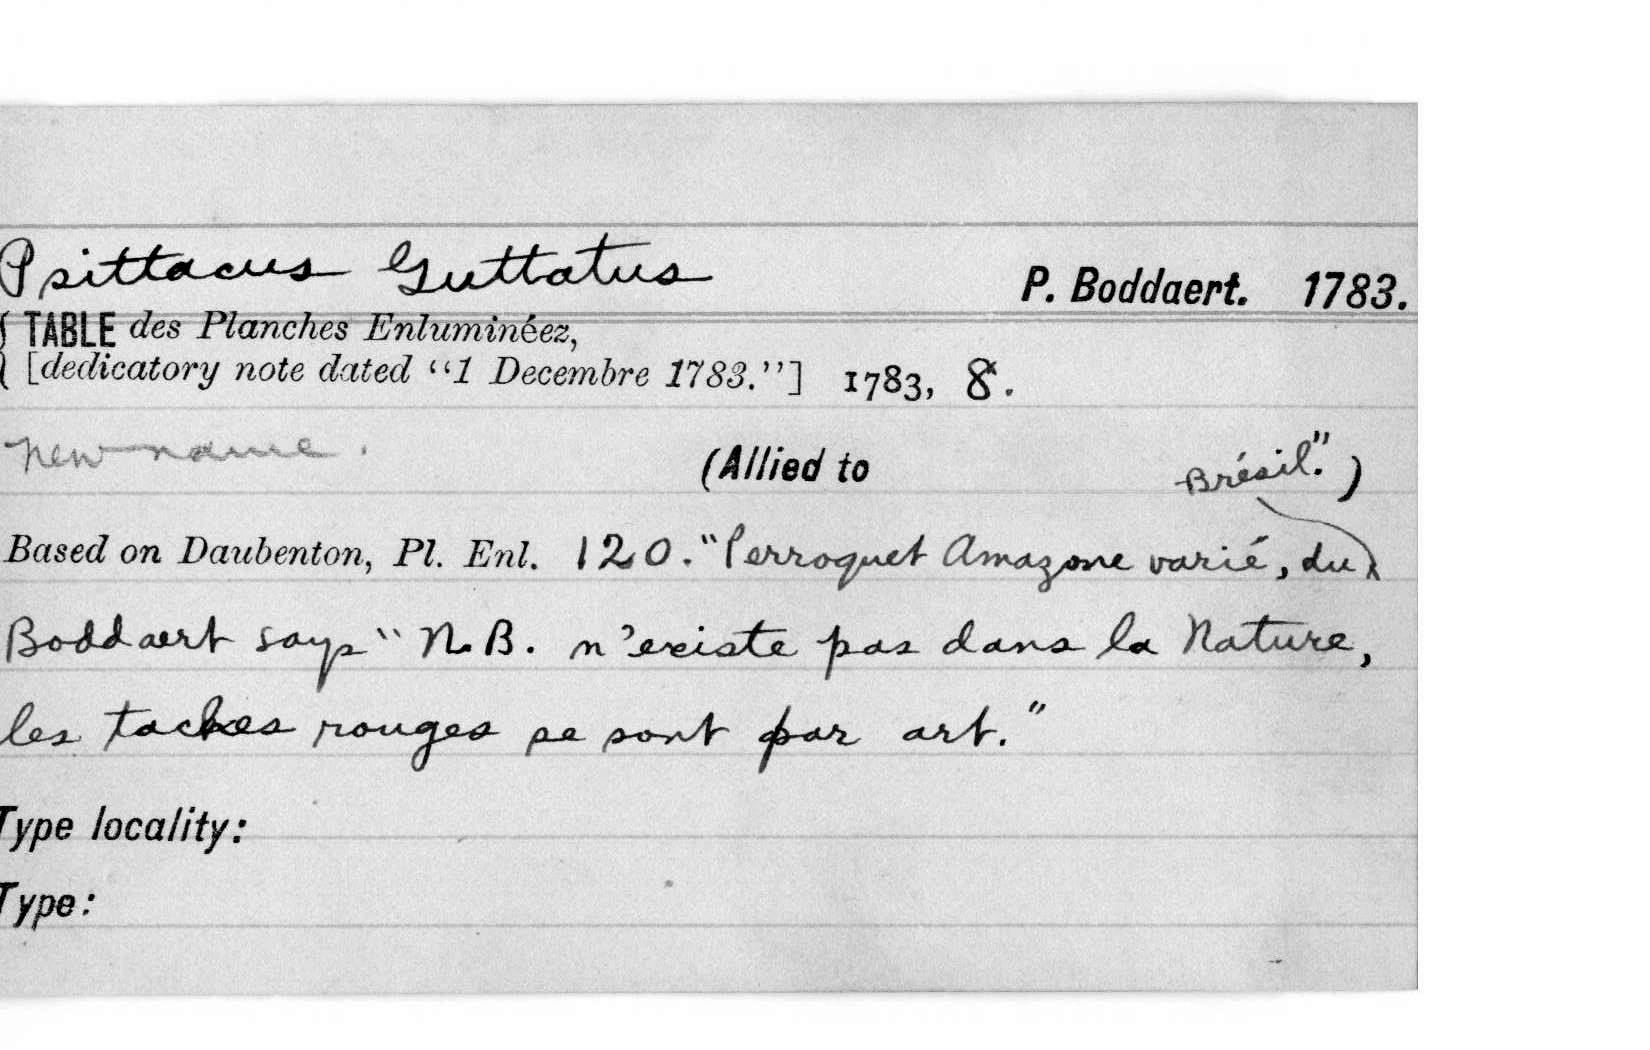 Psittacus Guttatus P. Boddaert. 1783.
{ TABLE des Planches Enluminéez,
[dedicatory note dated “1 Decembre 1783.”] 1783, 8.
New name.
(Allied to )
Based on Daubenton, Pl. Enl. 120. "Perroquet Amazone varié, du Brésil."
Boddaert says "N.B. n'existe pas dans la Nature,
les taches rouges se sont par art."
Type locality:
Type: